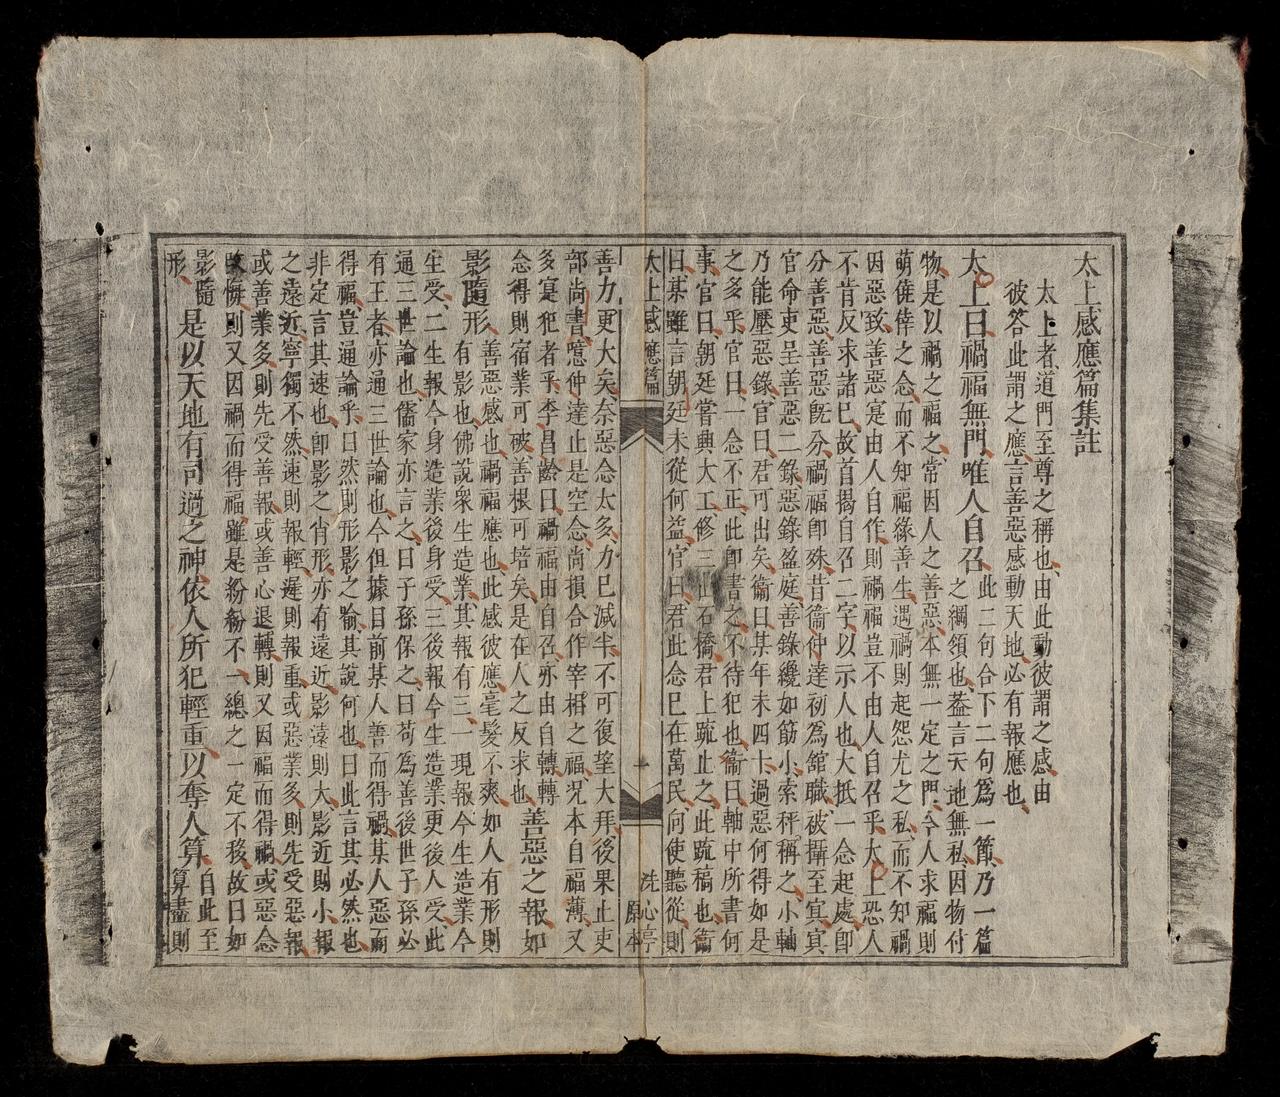 太上感應篇集註
太上者道門至尊之稱也由此動彼謂之感由
彼答此謂之應言善惡感動天地必有報應也
太上曰禍福無門唯人自召此二句合下二句爲一節乃一篇
之綱領也葢言天地無私因物付
物是以禍之福之常因人之善惡本無一定之門今人求福則
萌僥倖之念而不知福緣善生遇禍則起怨尤之私而不知禍
因惡致善惡寔由人自作則禍福豈不由人自召乎太上恐人
不肯反求諸已故首揭自召二字以示人也大抵一念起處卽
分善惡善惡旣分禍福卽殊昔衞仲達初爲舘職被攝至冥冥
官命吏呈善惡二錄惡錄盈庭善錄纔如筯小索秤稱之小軸
乃能壓惡錄官曰君可出矣衞曰某年未四十過惡何得如是
之多乎官曰一念不正此卽書之不待犯也衞曰軸中所書何
事官曰朝廷嘗興大工修三山石橋君上疏止之此疏稿也衞
曰某雖言朝廷未從何益官曰君此念已在萬民何使聽從則
太上感應篇
一
洗心亭
原本
善力更大矣奈惡念太多力已減半不可復望大拜後果止吏
部尚書噫仲達止是空念尚損合作宰相之福况本自福薄又
多寔犯者乎李昌齡曰禍福由自召亦由自轉轉
念得則宿業可破善根可培矣是在人之反求也善惡之報如
影隨形善惡感也禍福應也此感彼應毫髮不爽如人有形則
有影也佛說衆生造業其報有三一現報今生造業今
生受二生報今身造業後身受三後報今生造業更後人受此
通三世論也儒家亦言之曰子孫保之曰苟爲善後世子孫必
有王者亦通三世論也今但據目前某人善而得禍某人惡而
得福豈通論乎曰然則形影之喻其說何也曰此言其必然也
非定言其速也卽影之肖形亦有遠近影遠則大影近則小報
之遠近寧獨不然速則報輕遲則報重或惡業多則先受惡報
或善業多則先受善報或善心退轉則又因福而得禍或惡念
改悔則又因禍而得福雖是紛紛不一總之一定不移故曰如
影隨
形是以天地有司過之神依人所犯輕重以奪人算自此至
算盡則